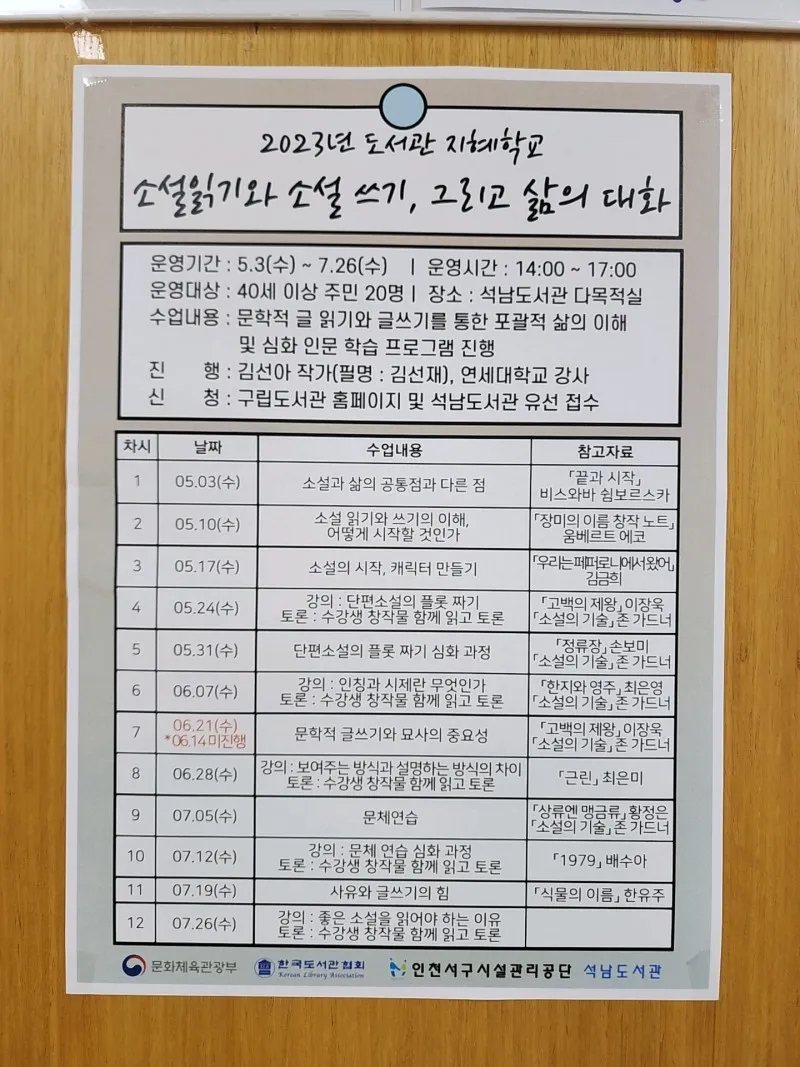 2023년 도서관 지혜학교
소설읽기와 소설 쓰기, 그리고 삶의 대화
운영기간 : 5.3(수) ~ 7.26(수) | 운영시간 : 14:00 ~ 17:00
운영대상 : 40세 이상 주민 20명 | 장소 : 석남도서관 다목적실
수업내용 : 문학적 글 읽기와 글쓰기를 통한 포괄적 삶의 이해
및 심화 인문 학습 프로그램 진행
진 행 : 김선아 작가(필명 : 김선재), 연세대학교 강사
신 청 : 구립도서관 홈페이지 및 석남도서관 유선 접수
차시 날짜 수업내용 참고자료
1 05.03(수) 소설과 삶의 공통점과 다른 점 「끝과 시작」
비스와바 쉼보르스카
2 05.10(수) 소설 읽기와 쓰기의 이해, 「장미의 이름 창작 노트」
어떻게 시작할 것인가 움베르트 에코
3 05.17(수) 소설의 시작, 캐릭터 만들기 「우리는페퍼로니에서왔어」
김금희
4 05.24(수) 강의 : 단편소설의 플롯 짜기 「고백의 제왕」 이장욱
토론 : 수강생 창작물 함께 읽고 토론 「소설의 기술」 존 가드너
5 05.31(수) 단편소설의 플롯 짜기 심화 과정 「정류장」 손보미
「소설의 기술」 존 가드너
6 06.07(수) 강의 : 인칭과 시제란 무엇인가 「한지와 영주」 최은영
토론 : 수강생 창작물 함께 읽고 토론 「소설의 기술」 존 가드너
7 06.21(수) 문학적 글쓰기와 묘사의 중요성 「고백의 제왕」 이장욱
*06.14 미진행 「소설의 기술」 존 가드너
8 06.28(수) 강의 : 보여주는 방식과 설명하는 방식의 차이 「근린」 최은미
토론 : 수강생 창작물 함께 읽고 토론
9 07.05(수) 문체연습 「상류엔 맹금류」 황정은
「소설의 기술」 존 가드너
10 07.12(수) 강의 : 문체 연습 심화 과정 「1979」 배수아
토론 : 수강생 창작물 함께 읽고 토론
11 07.19(수) 사유와 글쓰기의 힘 「식물의 이름」 한유주
12 07.26(수) 강의 : 좋은 소설을 읽어야 하는 이유
토론 : 수강생 창작물 함께 읽고 토론
문화체육관광부 한국도서관협회 인천서구시설관리공단 석남도서관
Korean Library Association